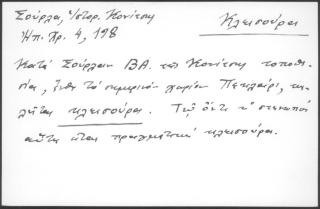 Σούρλα, Ἱστορ. Κονίτσης
Κλεισούρα
Ἠπ. Χρ. 4, 198
Κατὰ Σούρλαν ΒΑ. τῆς Κονίτσης τοποθε-
σία, ἔνθα τὸ σημερινὸν χωρίον Πεκλάρι, κα-
λεῖται κλεισούρα. Τῷ ὄντι ἡ στενωπὸς
αὕτη εἶναι πραγματικὴ κλεισούρα.